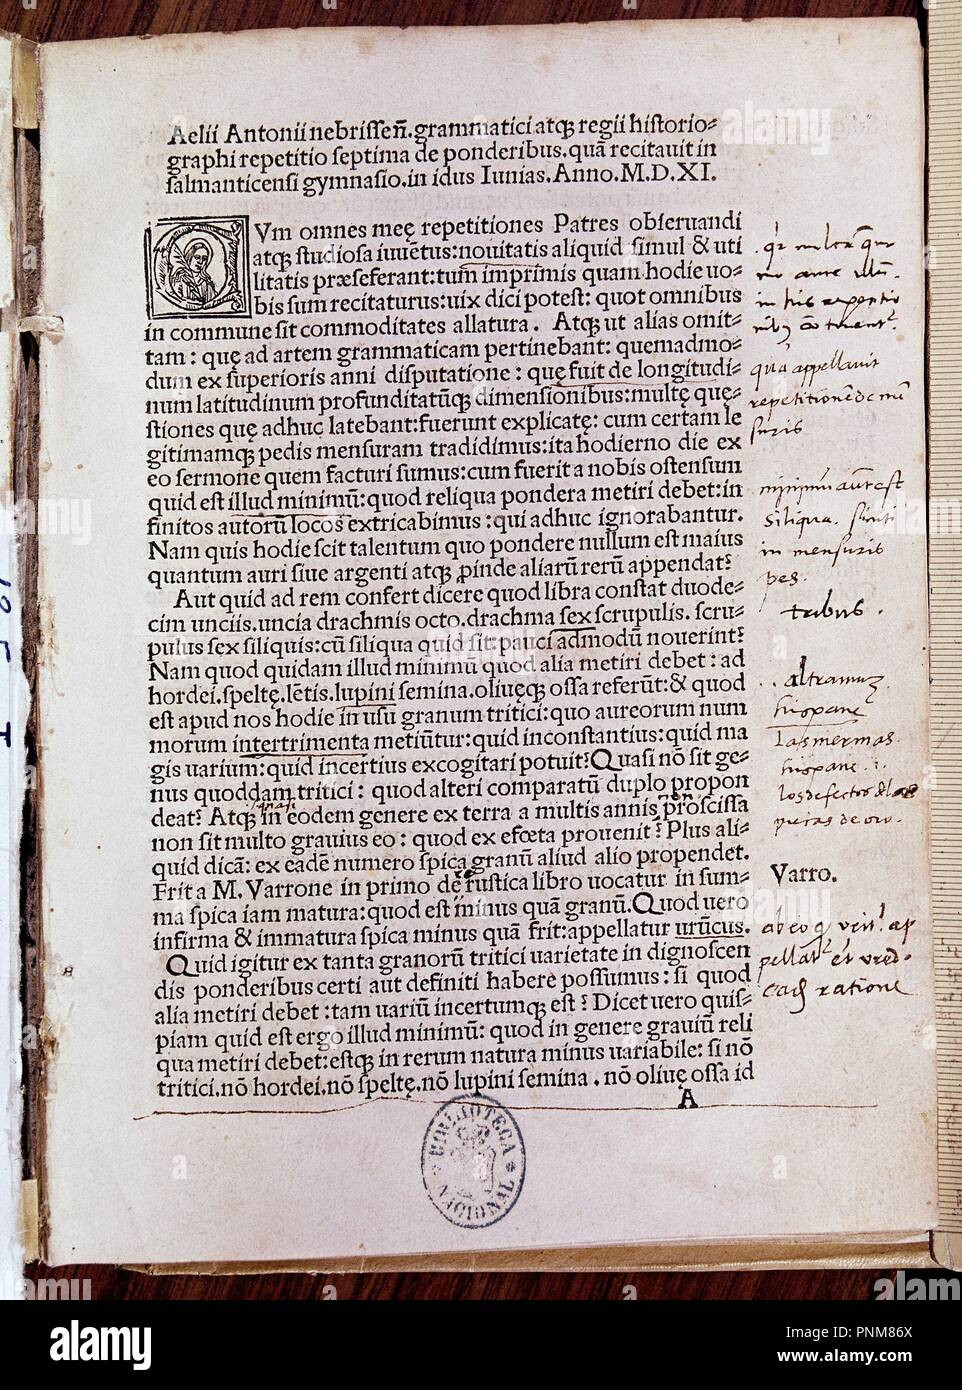 Aelii Antonii nebrissen̄.grammatici atq; regii historio-
graphi repetitio septima de ponderibus.quā recitauit in
salmanticensi gymnasio.in idus Iunias.Anno.M.D.XI.
CVm omnes meę repetitiones Patres obseruandi
atq; studiosa iuuētus:nouitatis aliquid simul & uti
litatis præseferant:tum imprimis quam hodie uo-
bis sum recitaturus:uix dici potest: quot omnibus
in commune sit commoditates allatura. Atq; ut alias omit-
tam: quę ad artem grammaticam pertinebant: quemadmo-
dum ex superioris anni disputatione: quę fuit de longitudi-
num latitudinum profunditatūq; dimensionibus:multę quę-
stiones quę adhuc latebant:fuerunt explicatę: cum certam le
gitimamq; pedis mensuram tradidimus:ita hodierno die ex
eo sermone quem facturi sumus:cum fuerit a nobis ostensum
quid est illud minimū: quod reliqua pondera metiri debet:in
finitos autorū locos extricabimus:qui adhuc ignorabantur.
Nam quis hodie scit talentum quo pondere nullum est maius
quantum auri siue argenti atq; ꝓinde aliarū rerū appendat?
Aut quid ad rem confert dicere quod libra constat duode-
cim unciis.uncia drachmis octo.drachma sex scrupulis. scru-
pulus sex siliquis:cū siliqua quid sit:pauci admodū nouerint?
Nam quod quidam illud minimū quod alia metiri debet: ad
hordei.speltę.lētis.lupini semina.oliuęq; ossa referūt:& quod
est apud nos hodie in usu granum tritici:quo aureorum num
morum intertrimenta metiūtur:quid inconstantius:quid ma
gis uarium:quid incertius excogitari potuit?Quasi nō sit ge-
nus quoddam tritici: quod alteri comparatū duplo propon
deat? Atq; in eodem genere ex terra a multis annis proscissa
non sit multo grauius eo: quod ex efœta prouenit? Plus ali-
quid dicā: ex eadē numero spica granū aliud alio propendet.
Frit a M. Varrone in primo de rustica libro uocatur in sum-
ma spica iam matura:quod est minus quā granū.Quod uero
infirma & immatura spica minus quā frit:appellatur urūcus.
Quid igitur ex tanta granorū tritici uarietate in dignoscen
dis ponderibus certi aut definiti habere possumus: si quod
alia metiri debet:tam uariū incertumq; est? Dicet uero quis-
piam quid est ergo illud minimū: quod in genere grauiū reli
qua metiri debet:estq; in rerum natura minus uariabile: si nō
tritici.nō hordei.nō speltę.nō lupini semina.nō oliuę ossa id
A
quā appellavit
repetitionē de mē
suris
minimū autē est
siliqua. sicuti
in mensuris
pes.
tribus.
altramuz
hispane
las mermas
hispane
los defectos de las
pieças de oro.
Varro.
ratione
BIBLIOTECA NACIONAL
alamy
PNM86X
www.alamy.com